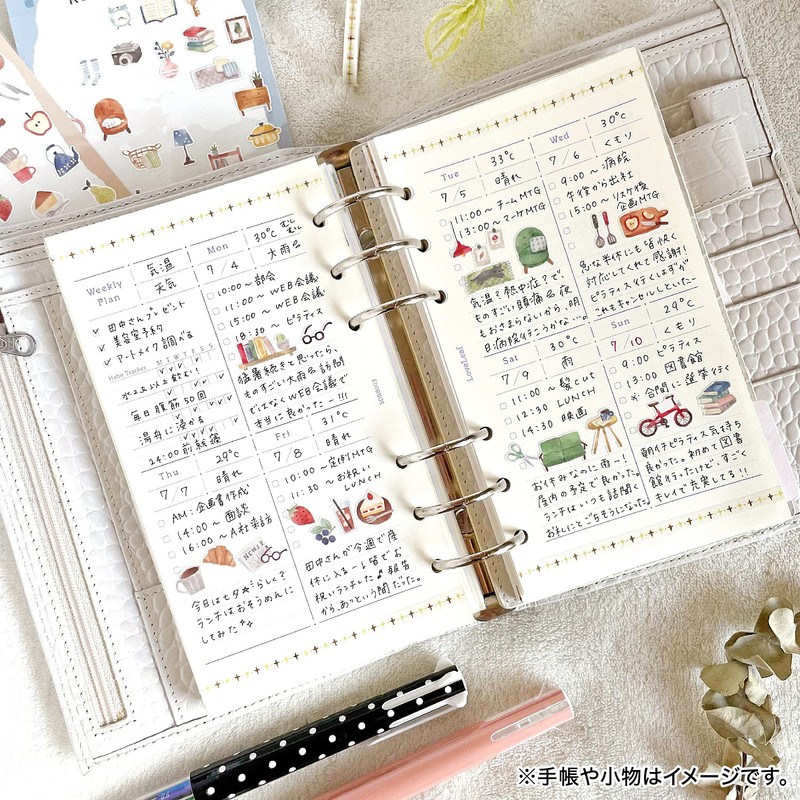 Weekly Plan
気温
天気
✓ 田中さんプレゼント
✓ 美容室予約
✓ アートメイク調べる
Habit Tracker M T W T F S S
水2L以上飲む!
毎日腹筋50回
湯舟に浸かる
24:00 前就寝
Mon
30℃
7/4
大雨
10:00〜部会
11:00〜WEB会議
15:00〜WEB会議
18:30〜ピラティス
猛暑続きと思ったら、
ものすごい大雨 訪問
でしてなくWEB会議で
本当に良かった…!!!
Thu
29℃
7/7
晴れ
AM:企画書作成
14:00〜面談
16:00〜A社来訪
NEWS
今日は七夕☆らしく?
ランチはおそうめんに
してみた
Fri
31℃
7/8
晴れ
10:00〜定例MTG
11:30〜お祝い
LUNCH
田中さんが今週で産
休に入る…♪皆でお
祝いランチした♪報告
から、あっという間だった。
LoveLeaf
Tue
33℃
7/5
晴れ
11:00〜チームMTG
13:00〜マーケMTG
気温?熱中症?で、
ものすごい頭痛 夜
もおさまらないから、明
日病院行こうかな…。
Wed
30℃
7/6
くもり
9:00〜病院
午後から出社
15:00〜リスケ後
企画MTG
急な半休にも皆快く
対応してくれて感謝!
ピラティス行くはずが
これもキャンセルしといたー
Sat
30℃
7/9
雨
11:00〜髪cut
12:30 LUNCH
14:30 映画
お休みなのに雨…!
屋内の予定で良かった。
ランチはいつも話聞く
お礼にとごちそうになった。
Sun
29℃
7/10
くもり
9:00 ピラティス
13:00 図書館
※合間に選挙行く
朝イチピラティス気持ち
良かった。初めて図書
館行ったけど、すごく
キレイで充実してる!!
※手帳や小物はイメージです。